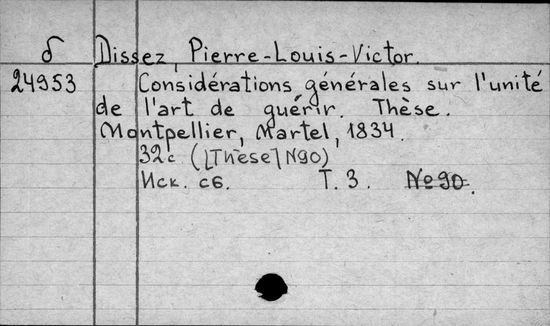 б Dissez, Pierre-Louis-Victor.
24953 Considérations générales sur l'unité
de l'art de guérir. Thèse.
Montpellier, Martel, 1834.
32c ([Thèse] N90)
Иск. сб. T. 3. №90.